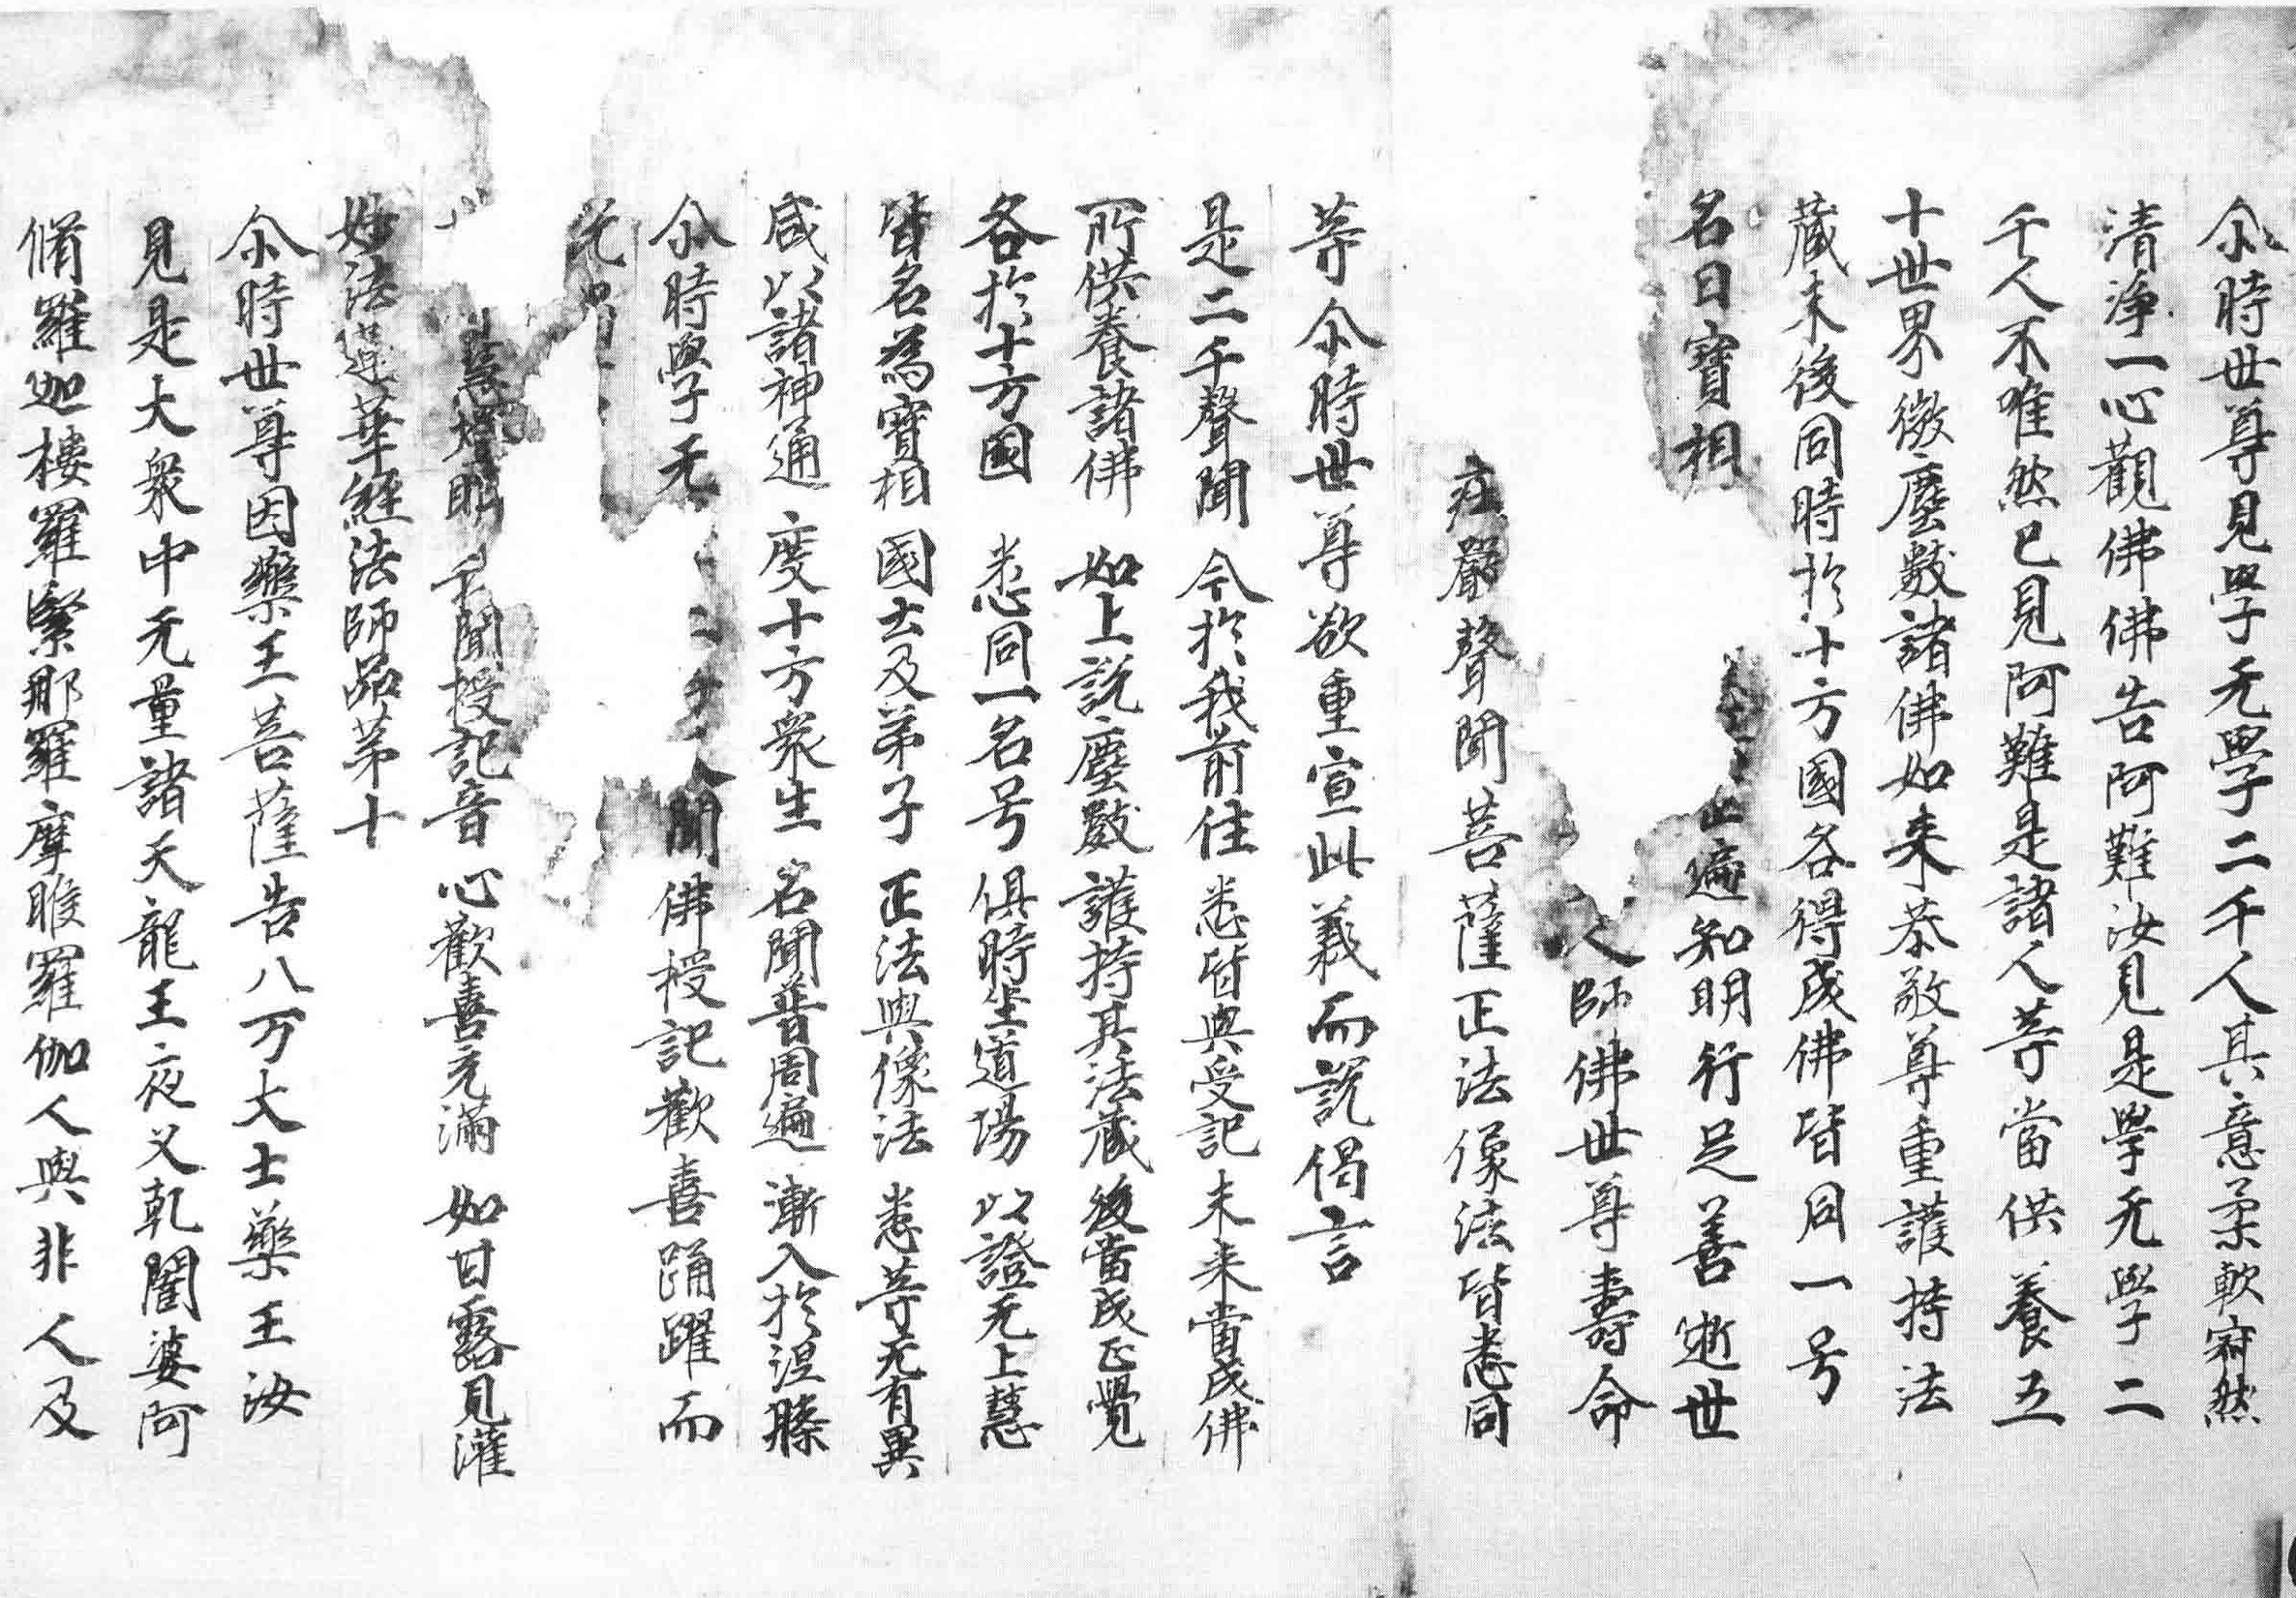 尒時世尊見學无學二千人其意柔軟寂然
清淨一心觀佛佛告阿難汝見是學无學二
千人不唯然已見阿難是諸人等當供養五
十世界微塵數諸佛如来恭敬尊重護持法
藏末後同時於十方國各得成佛皆同一号
名曰寶相 正遍知明行足善逝世
人師佛世尊壽命
莊嚴聲聞菩薩正法像法皆悉同
等尒時世尊欲重宣此義而說偈言
是二千聲聞 今於我前住 悉皆與受記 未来當成佛
所供養諸佛 如上說塵數 護持其法藏 後當成正覺
各於十方國 悉同一名号 俱時坐道場 以證无上慧
皆名為寶相 國土及弟子 正法與像法 悉等无有異
咸以諸神通 度十方衆生 名聞普周遍 漸入於涅槃
尒時學无 二千人聞佛授記歡喜踊躍而
慧燈明 千聞授記音 心歡喜充滿 如甘露見灌
妙法蓮華經法師品苐十
尒時世尊因藥王菩薩告八万大士藥王汝
見是大衆中无量諸天龍王夜叉乹闥婆阿
脩羅迦樓羅緊那羅摩睺羅伽人與非人及